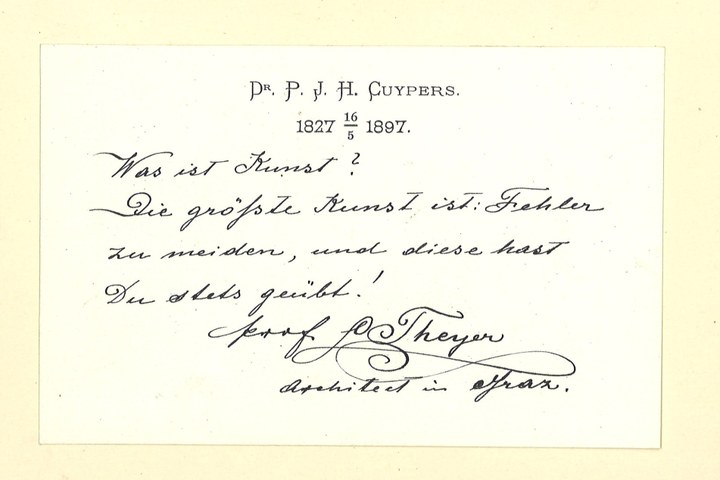 Dr. P. J. H. Cuypers.
1827 16/5 1897.
Was ist Kunst?
Die größte Kunst ist: Fehler
zu meiden, und diese hast
Du stets geübt!
prof Theyer
Architect in Graz.